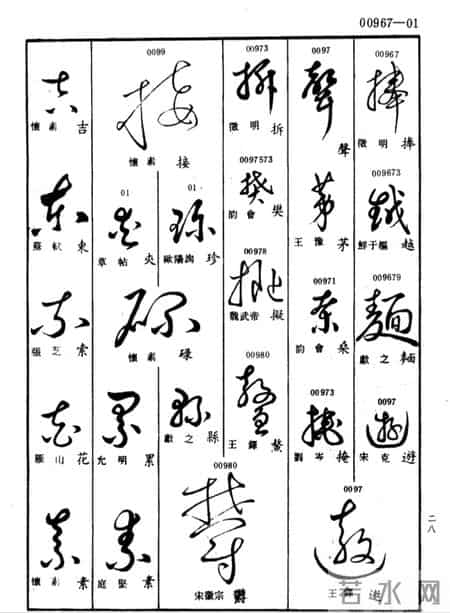 00967—01
00967
徵明 捧
009673
鮮于樞 越
009679
獻之 麵
0097
宋克 遊
0097
聲
王豫 茅
00971
韵會 桑
00973
劉岑 掩
0097
王鐸 遨
00973
徵明 拆
0097573
韵會 樊
00978
魏武帝 擬
00980
王鐸
00980
宋徽宗
0099
懷素 接
01
歐陽詢 珍
01
草帖
懷素 碌
獻之 縣
允明 累
庭堅 素
懷素 吉
蘇軾 東
張芝 索
雁山 花
懷素 素
二八
若水网